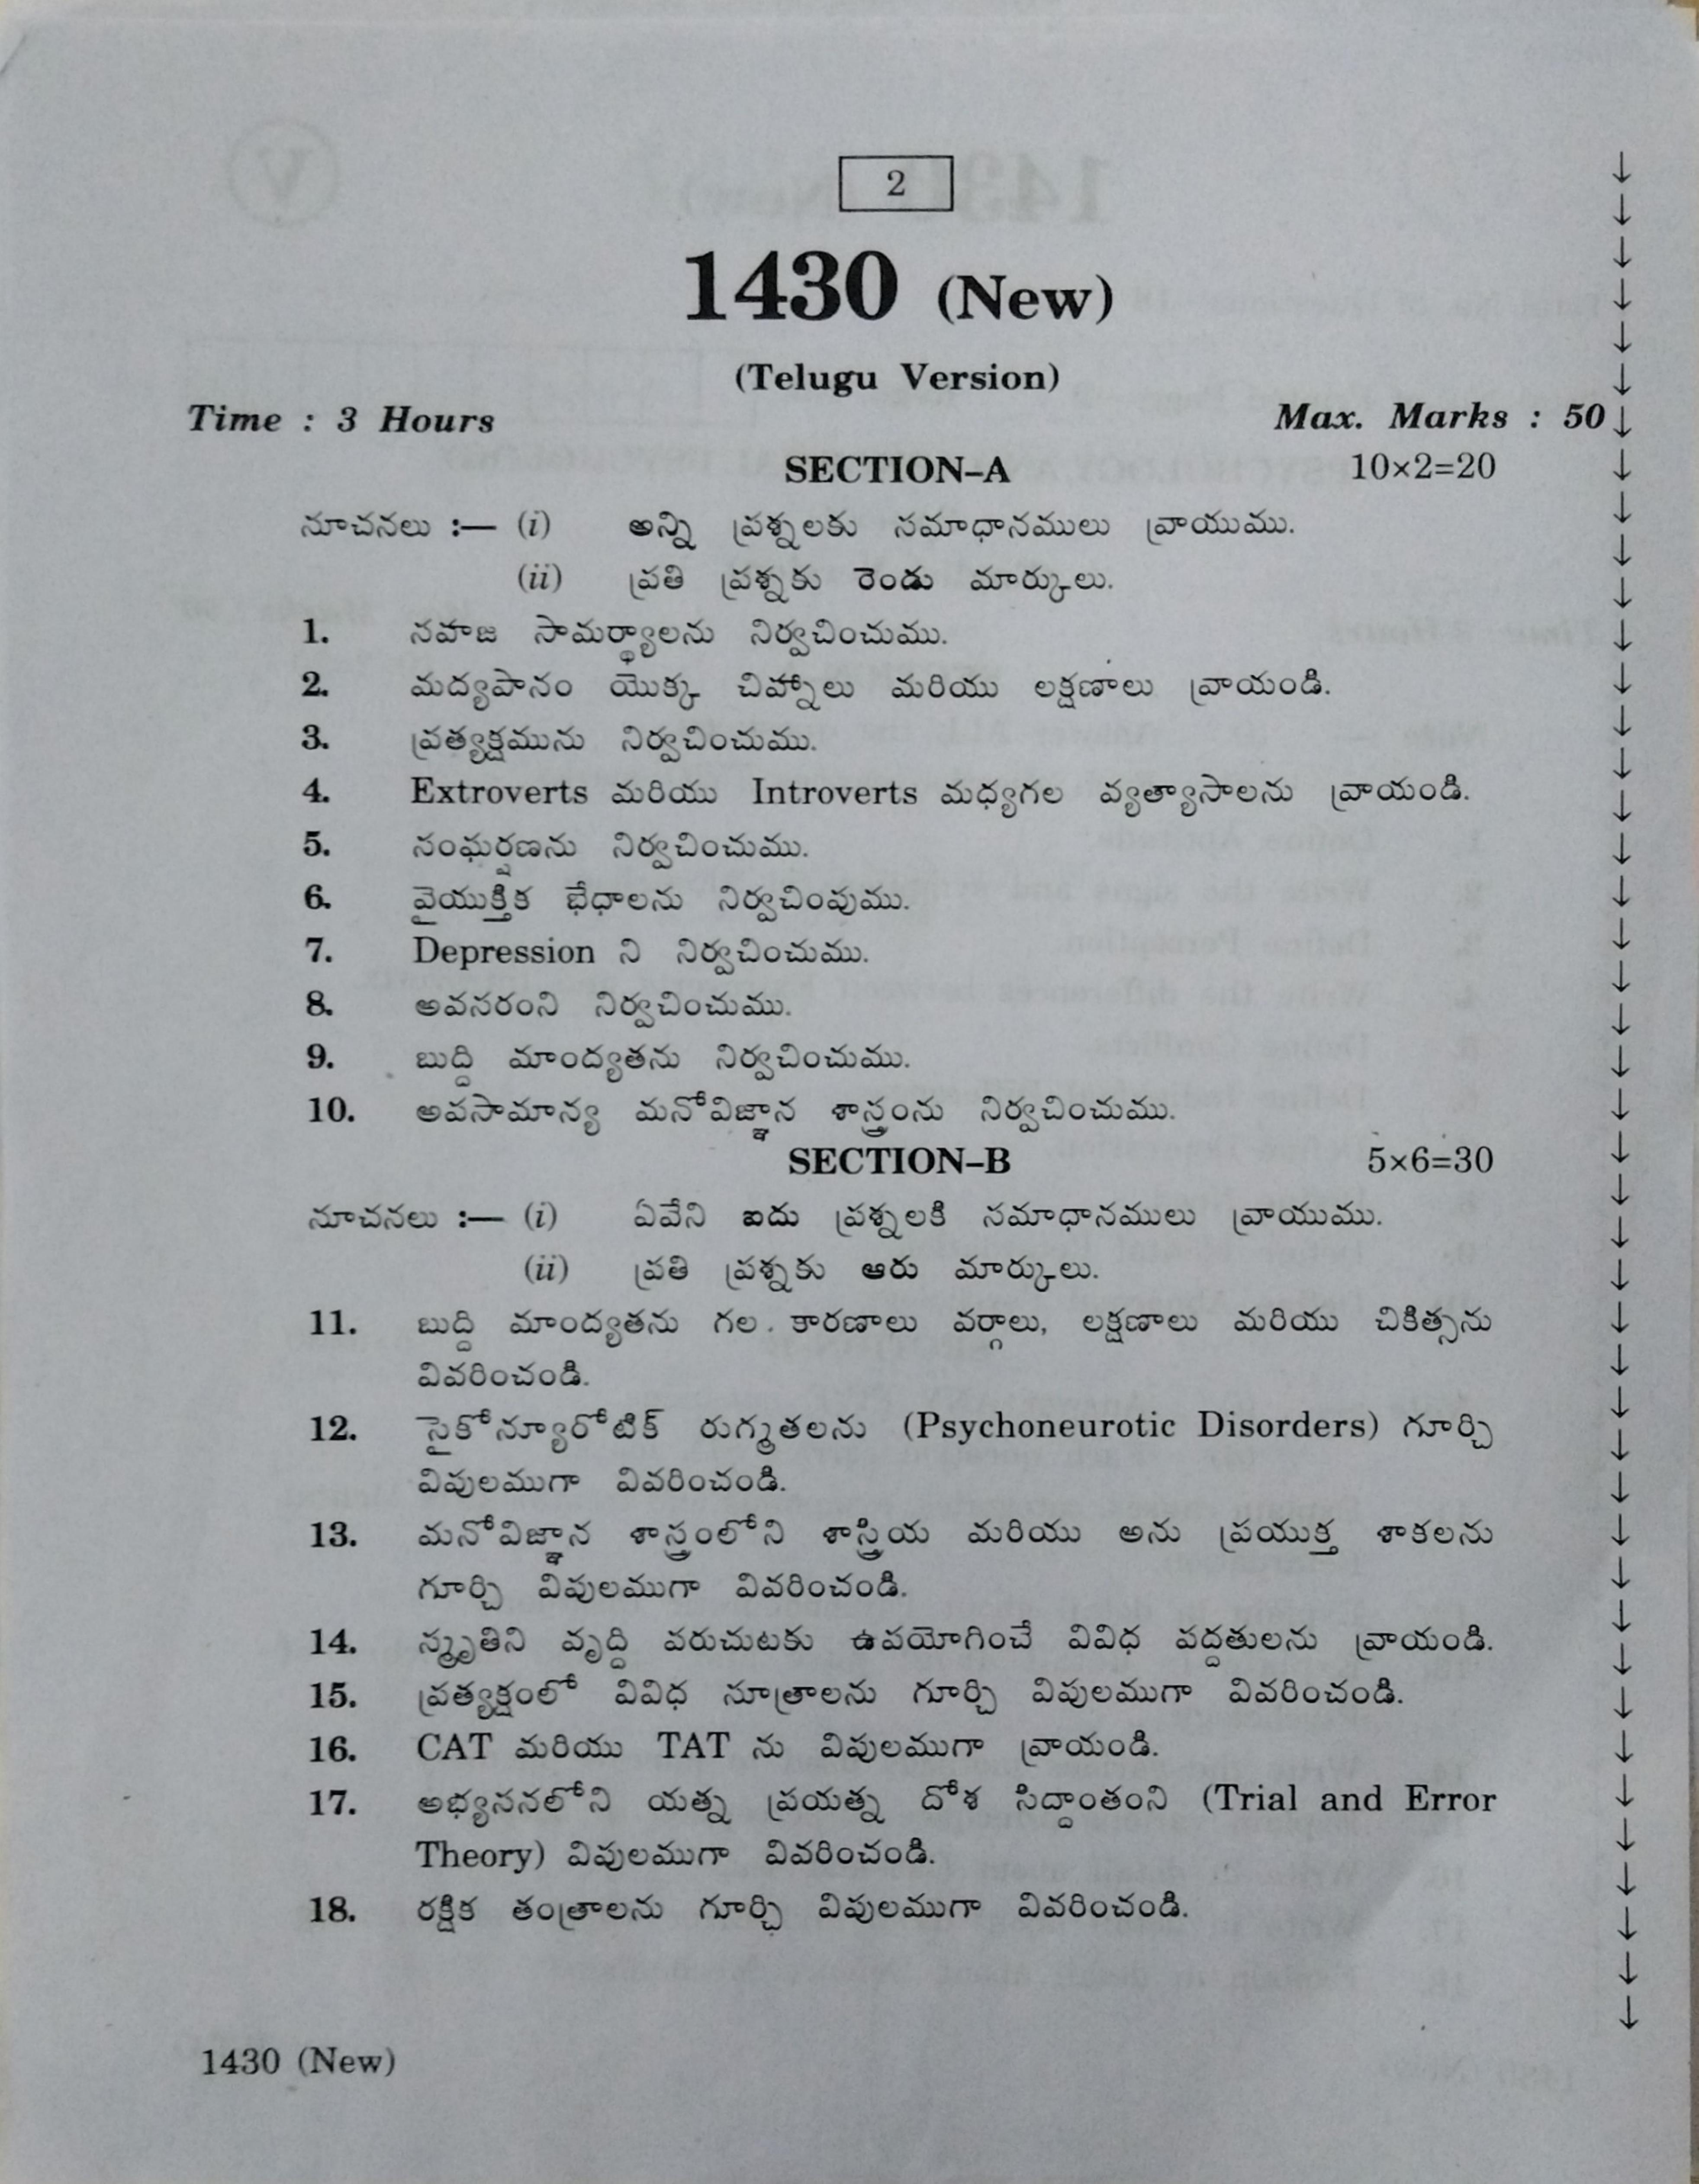 2
1430 (New)
(Telugu Version)
Time : 3 Hours Max. Marks : 50
SECTION–A 10×2=20
సూచనలు :— (i) అన్ని ప్రశ్నలకు సమాధానములు వ్రాయుము.
(ii) ప్రతి ప్రశ్నకు రెండు మార్కులు.
1. సహజ సామర్థ్యాలను నిర్వచించుము.
2. మద్యపానం యొక్క చిహ్నాలు మరియు లక్షణాలు వ్రాయండి.
3. ప్రత్యక్షమును నిర్వచించుము.
4. Extroverts మరియు Introverts మధ్యగల వ్యత్యాసాలను వ్రాయండి.
5. సంఘర్షణను నిర్వచించుము.
6. వైయుక్తిక భేధాలను నిర్వచింపుము.
7. Depression ని నిర్వచించుము.
8. అవసరంని నిర్వచించుము.
9. బుద్ది మాంద్యతను నిర్వచించుము.
10. అపసామాన్య మనోవిజ్ఞాన శాస్త్రంను నిర్వచించుము.
SECTION–B 5×6=30
సూచనలు :— (i) ఏవేని ఐదు ప్రశ్నలకి సమాధానములు వ్రాయుము.
(ii) ప్రతి ప్రశ్నకు ఆరు మార్కులు.
11. బుద్ది మాంద్యతను గల కారణాలు వర్గాలు, లక్షణాలు మరియు చికిత్సను
వివరించండి.
12. సైకోన్యూరోటిక్ రుగ్మతలను (Psychoneurotic Disorders) గూర్చి
విపులముగా వివరించండి.
13. మనోవిజ్ఞాన శాస్త్రంలోని శాస్త్రియ మరియు అను ప్రయుక్త శాకలను
గూర్చి విపులముగా వివరించండి.
14. స్మృతిని వృద్ది పరుచుటకు ఉపయోగించే వివిధ పద్దతులను వ్రాయండి.
15. ప్రత్యక్షంలో వివిధ సూత్రాలను గూర్చి విపులముగా వివరించండి.
16. CAT మరియు TAT ను విపులముగా వ్రాయండి.
17. అభ్యసనలోని యత్న ప్రయత్న దోశ సిద్దాంతంని (Trial and Error
Theory) విపులముగా వివరించండి.
18. రక్షిక తంత్రాలను గూర్చి విపులముగా వివరించండి.
1430 (New)